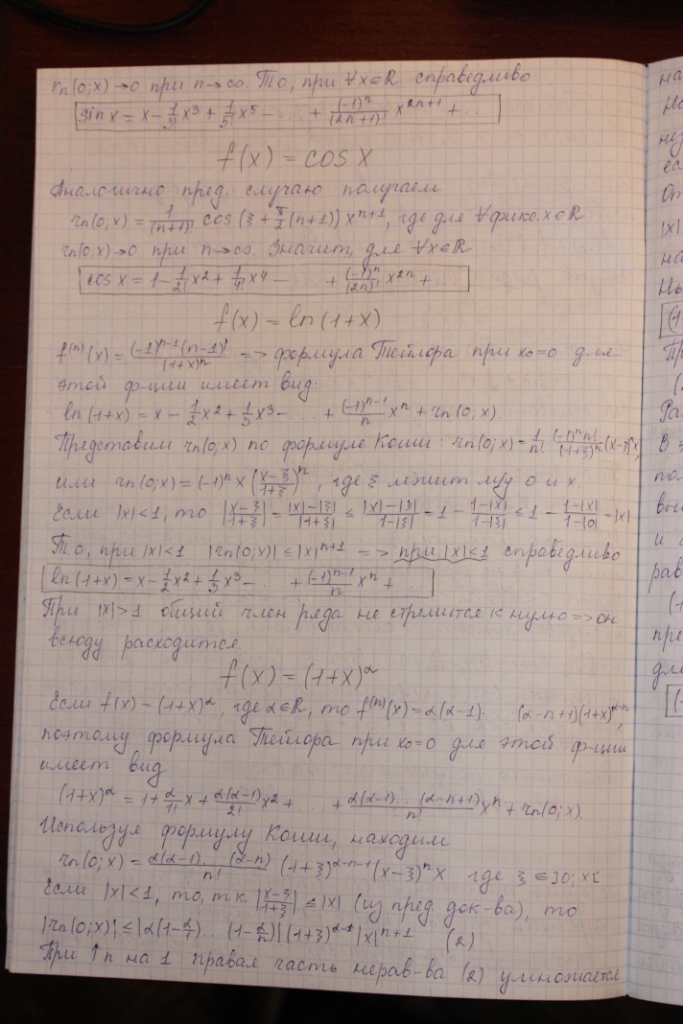 rn(0;x)→0 при n→∞. То, при ∀x∈ℝ справедливо
sin x = x - 1/3! x³ + 1/5! x⁵ - ... + (-1)ⁿ/(2n+1)! x²ⁿ⁺¹ + ...
f(x) = cos x
Аналогично пред. случаю получаем
rn(0;x) = 1/(n+1)! cos(ξ + π/2 (n+1)) xⁿ⁺¹, где для ∀фикс.x∈ℝ
rn(0;x)→0 при n→∞. Значит, для ∀x∈ℝ
cos x = 1 - 1/2! x² + 1/4! x⁴ - ... + (-1)ⁿ/(2n)! x²ⁿ + ...
f(x) = ln(1+x)
f⁽ⁿ⁾(x) = (-1)ⁿ⁻¹(n-1)!/(1+x)ⁿ => формула Тейлора при x₀=0 для
этой ф-ции имеет вид:
ln(1+x) = x - 1/2 x² + 1/3 x³ - ... + (-1)ⁿ⁻¹/n xⁿ + rn(0;x).
Представим rn(0;x) по формуле Коши: rn(0;x) = 1/n! (-1)ⁿn!/(1+ξ)ⁿ (x-ξ)ⁿx,
или rn(0;x) = (-1)ⁿ x ((x-ξ)/(1+ξ))ⁿ, где ξ лежит м/у 0 и x.
Если |x|<1, то |(x-ξ)/(1+ξ)| = (|x|-|ξ|)/|1+ξ| ≤ (|x|-|ξ|)/(1-|ξ|) = 1 - (1-|x|)/(1-|ξ|) ≤ 1 - (1-|x|)/(1-|0|) = |x|
Т.О, при |x|<1 |rn(0;x)| ≤ |x|ⁿ⁺¹ => при |x|<1 справедливо
ln(1+x) = x - 1/2 x² + 1/3 x³ - ... + (-1)ⁿ⁻¹/n xⁿ + ...
При |x|>1 общий член ряда не стремится к нулю => он
всюду расходится.
f(x) = (1+x)^α
Если f(x) = (1+x)^α, где α∈ℝ, то f⁽ⁿ⁾(x) = α(α-1)... (α-n+1)(1+x)^(α-n),
поэтому формула Тейлора при x₀=0 для этой ф-ции
имеет вид
(1+x)^α = 1 + α/1! x + α(α-1)/2! x² + ... + α(α-1)...(α-n+1)/n! xⁿ + rn(0;x).
Используя формулу Коши, находим
rn(0;x) = α(α-1)...(α-n)/n! (1+ξ)^(α-n-1) (x-ξ)ⁿ x где ξ∈]0;x[
Если |x|<1, то, т.к. |(x-ξ)/(1+ξ)| ≤ |x| (из пред. док-ва), то
|rn(0;x)| ≤ |α(1-α/1)...(1-α/n)| (1+ξ)^(α-1) |x|ⁿ⁺¹ (2)
При ↑n на 1 правая часть нерав-ва (2) умножается